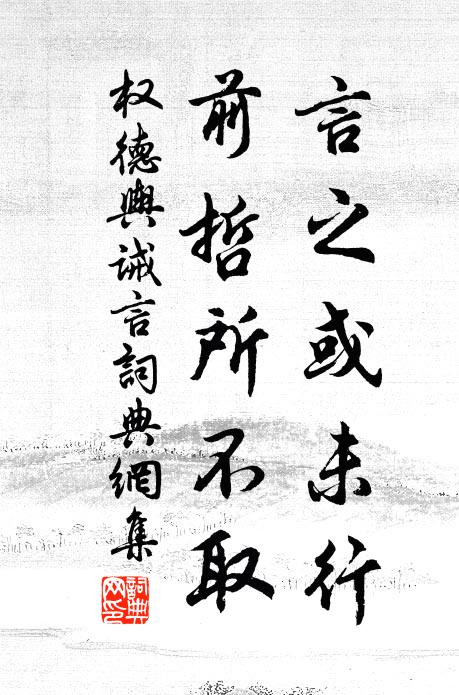 言之或未行
前哲所不取
权德輿誡言詞典網集
詞典网印